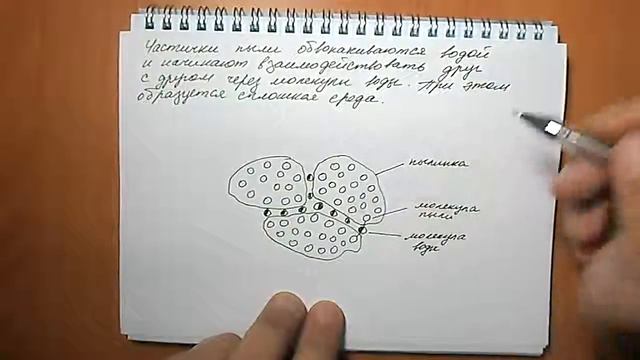 Частички пыли обволакиваются водой
и начинают взаимодействовать друг
с другом через молекулы воды. При этом
образуется сплошная среда.
пылинка
молекула
пыли
молекула
воды